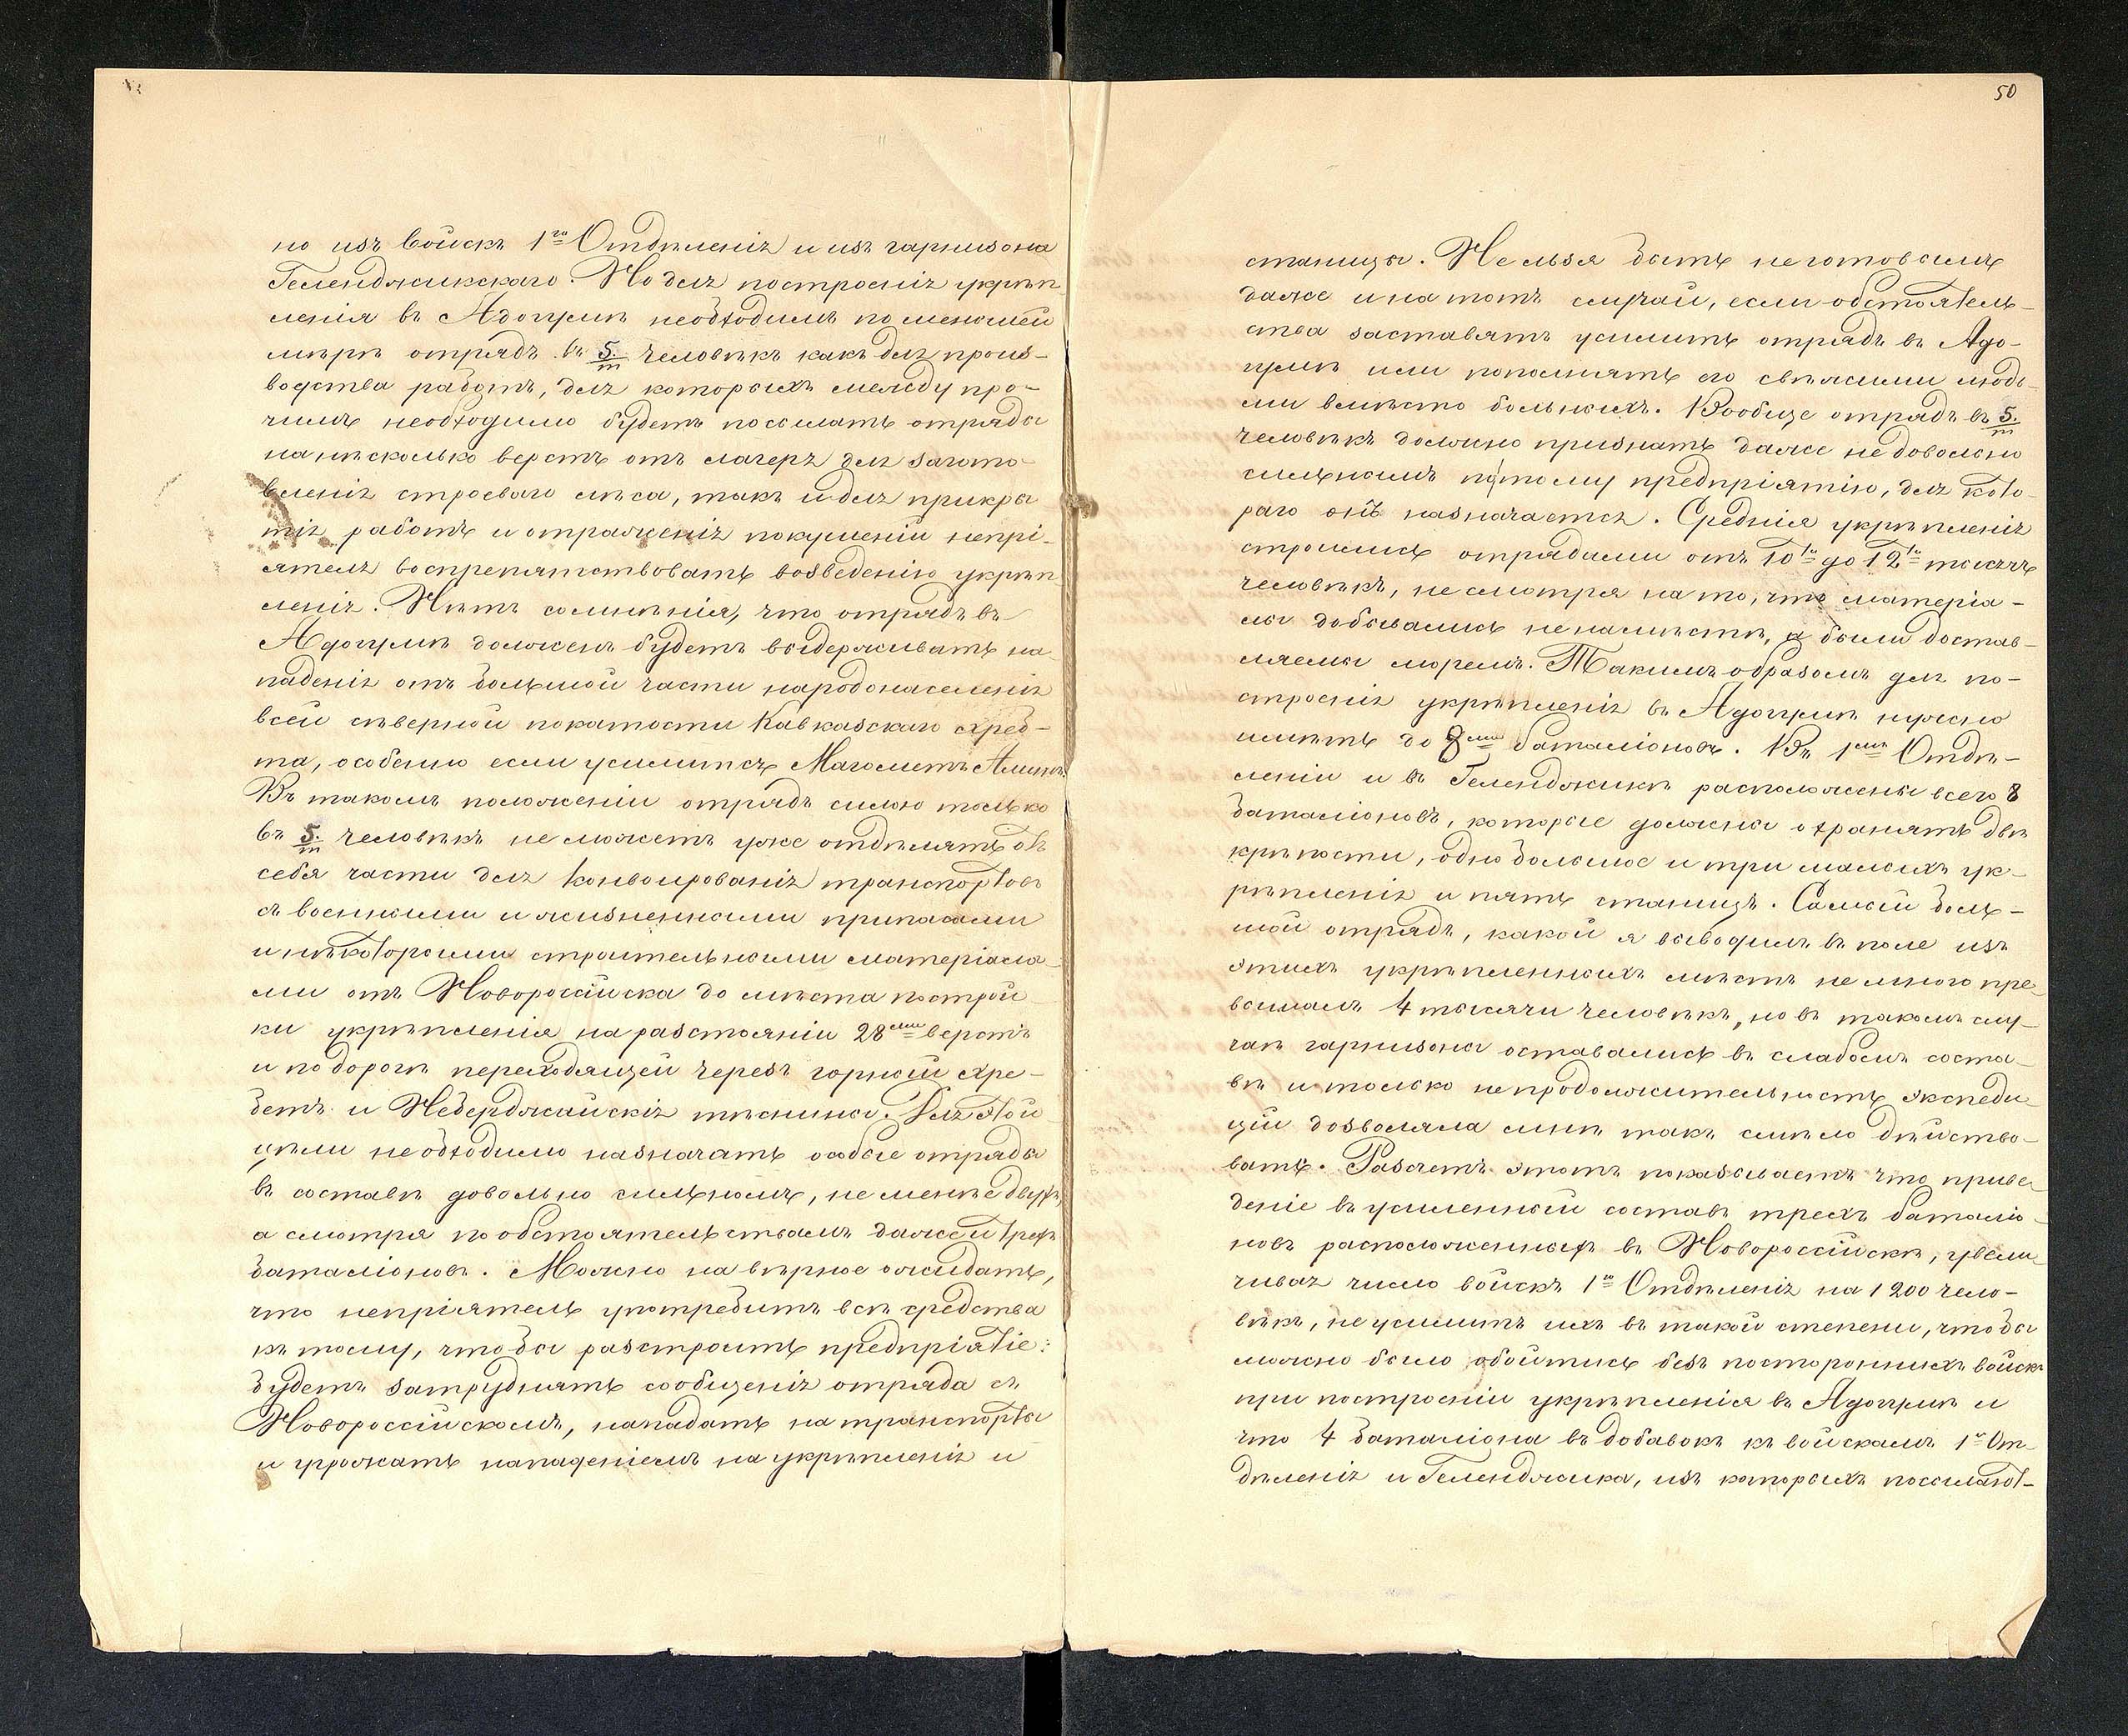 но изъ войскъ 1го Отдѣленія и изъ гарнизона
Геленджикскаго. Но для построенія укрѣп-
ленія въ Адагумѣ необходимъ по меньшей
мѣрѣ отрядъ въ 5/т человѣкъ какъ для произ-
водства работъ, для которыхъ между про-
чимъ необходимо будетъ посылать отряды
на нѣсколько верстъ отъ лагеря для загото-
вленія строеваго лѣса, такъ и для прикры
тія работъ и отраженія покушеній непрі-
ятеля воспрепятствовать возведенію укрѣп
ленія. Нѣтъ сомнѣнія, что отрядъ въ
Адогумѣ долженъ будетъ выдерживать на-
паденія отъ большой части народонаселенія
всей сѣверной покатости Кавказскаго хреб-
та, особенно если усилится Магометъ Аминъ.
Въ такомъ положеніи отрядъ силою только
въ 5/т человѣкъ не можетъ уже отдѣлять отъ
себя части для конвоированія транспортовъ
съ военными и жизненными припасами
и нѣкоторыми строительными матеріала-
ми отъ Новороссійска до мѣста построй-
ки укрѣпленія на разстояніи 28ми верстъ
и по дорогѣ переходящей черезъ горный хре-
бетъ и Неберджайскія тѣснины. Для этой
цѣли необходимо назначать особые отряды
въ составѣ довольно сильномъ, не менѣе двухъ,
а смотря по обстоятельствамъ даже и трехъ
баталіоновъ. Можно на вѣрное ожидать,
что непріятель употребитъ всѣ средства
къ тому, чтобы разстроить предпріятіе:
будетъ затруднять сообщенія отряда съ
Новороссійскомъ, нападать на транспорты
и угрожать нападеніемъ на укрѣпленія и
50
станицы. Нельзя быть не готовымъ
даже и на тотъ случай, если обстоятель-
ства заставятъ усилить отрядъ въ Адо-
гумѣ или пополнять его свѣжими людь-
ми вмѣсто больныхъ. Вообще отрядъ въ 5/т
человѣкъ должно признать даже не довольно
сильнымъ по тому предпріятію, для кото-
раго онъ назначается. Среднія укрѣпленія
строились отрядами отъ 10ти до 12ти тысячъ
человѣкъ, не смотря на то, что матеріа-
лы добывались не на мѣстѣ, а были достав-
ляемы моремъ. Такимъ образомъ для по-
строенія укрѣпленія въ Адогумѣ нужно
имѣть до 8ми баталіоновъ. Въ 1мъ Отдѣ-
леніи и въ Геленджикѣ расположены всего 8
баталіоновъ, которые должны охранять двѣ
крѣпости, одно большое и три малыхъ ук-
рѣпленія и пять станицъ. Самый боль-
шой отрядъ, какой я выводилъ въ поле изъ
этихъ укрѣпленныхъ мѣстъ не много пре-
вышалъ 4 тысячи человѣкъ, но въ такомъ слу-
чаѣ гарнизоны оставались въ слабомъ соста-
вѣ и только непродолжительность экспеди-
ціи дозволяла мнѣ такъ смѣло дѣйство-
вать. Разсчетъ этотъ показываетъ что приве-
деніе въ усиленный составъ трехъ баталіо-
новъ расположенныхъ въ Новороссійскѣ, увели-
чивая число войскъ 1го Отдѣленія на 1200 чело-
вѣкъ, не усилитъ ихъ въ такой степени, чтобы
можно было обойтись безъ постороннихъ войскъ
при построеніи укрѣпленія въ Адогумѣ и
что 4 баталіона въ добавокъ къ войскамъ 1го От-
дѣленія и Геленджика, изъ которыхъ посылают-